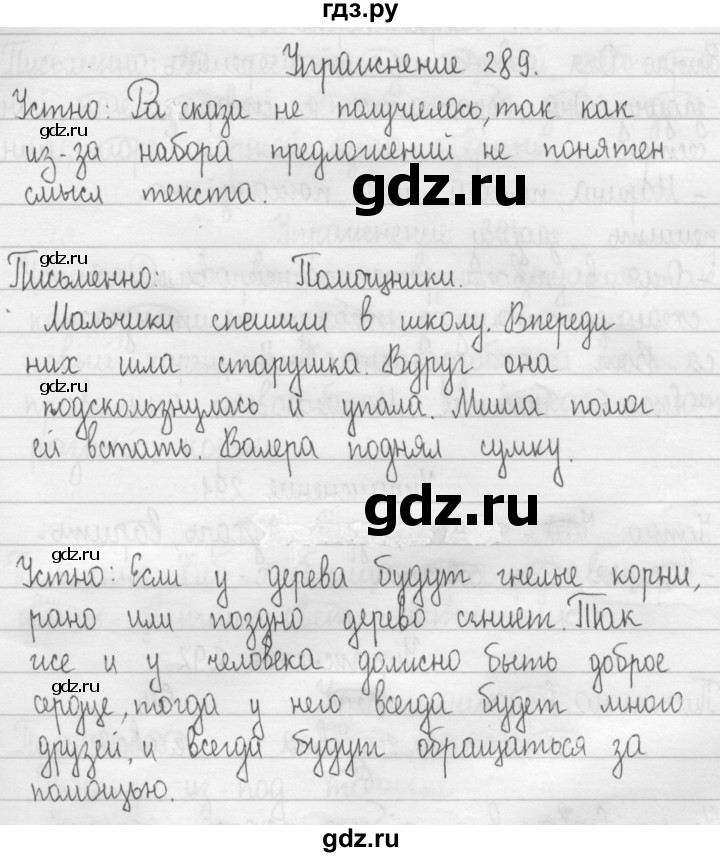 гдз.ру
Упражнение 289.
gdz.ru
Устно: Рассказа не получилось, так как
gdz.ru
из-за набора предложений не понятен
gdz.ru
смысл текста.
gdz.ru
Письменно: Помощники.
Мальчики спешили в школу. Впереди
них шла старушка. Вдруг она
gdz.ru
подскользнулась и упала. Миша помог
ей встать. Валера поднял сумку.
gdz.ru
gdz.ru
Устно: Если у дерева будут гнелые корни,
рано или поздно дерево сгниет. Так
же и у человека должно быть доброе
gdz.ru
сердце, тогда у него всегда будет много
друзей, и всегда будут обращаться за
gdz.ru
помощью.
gdz.ru